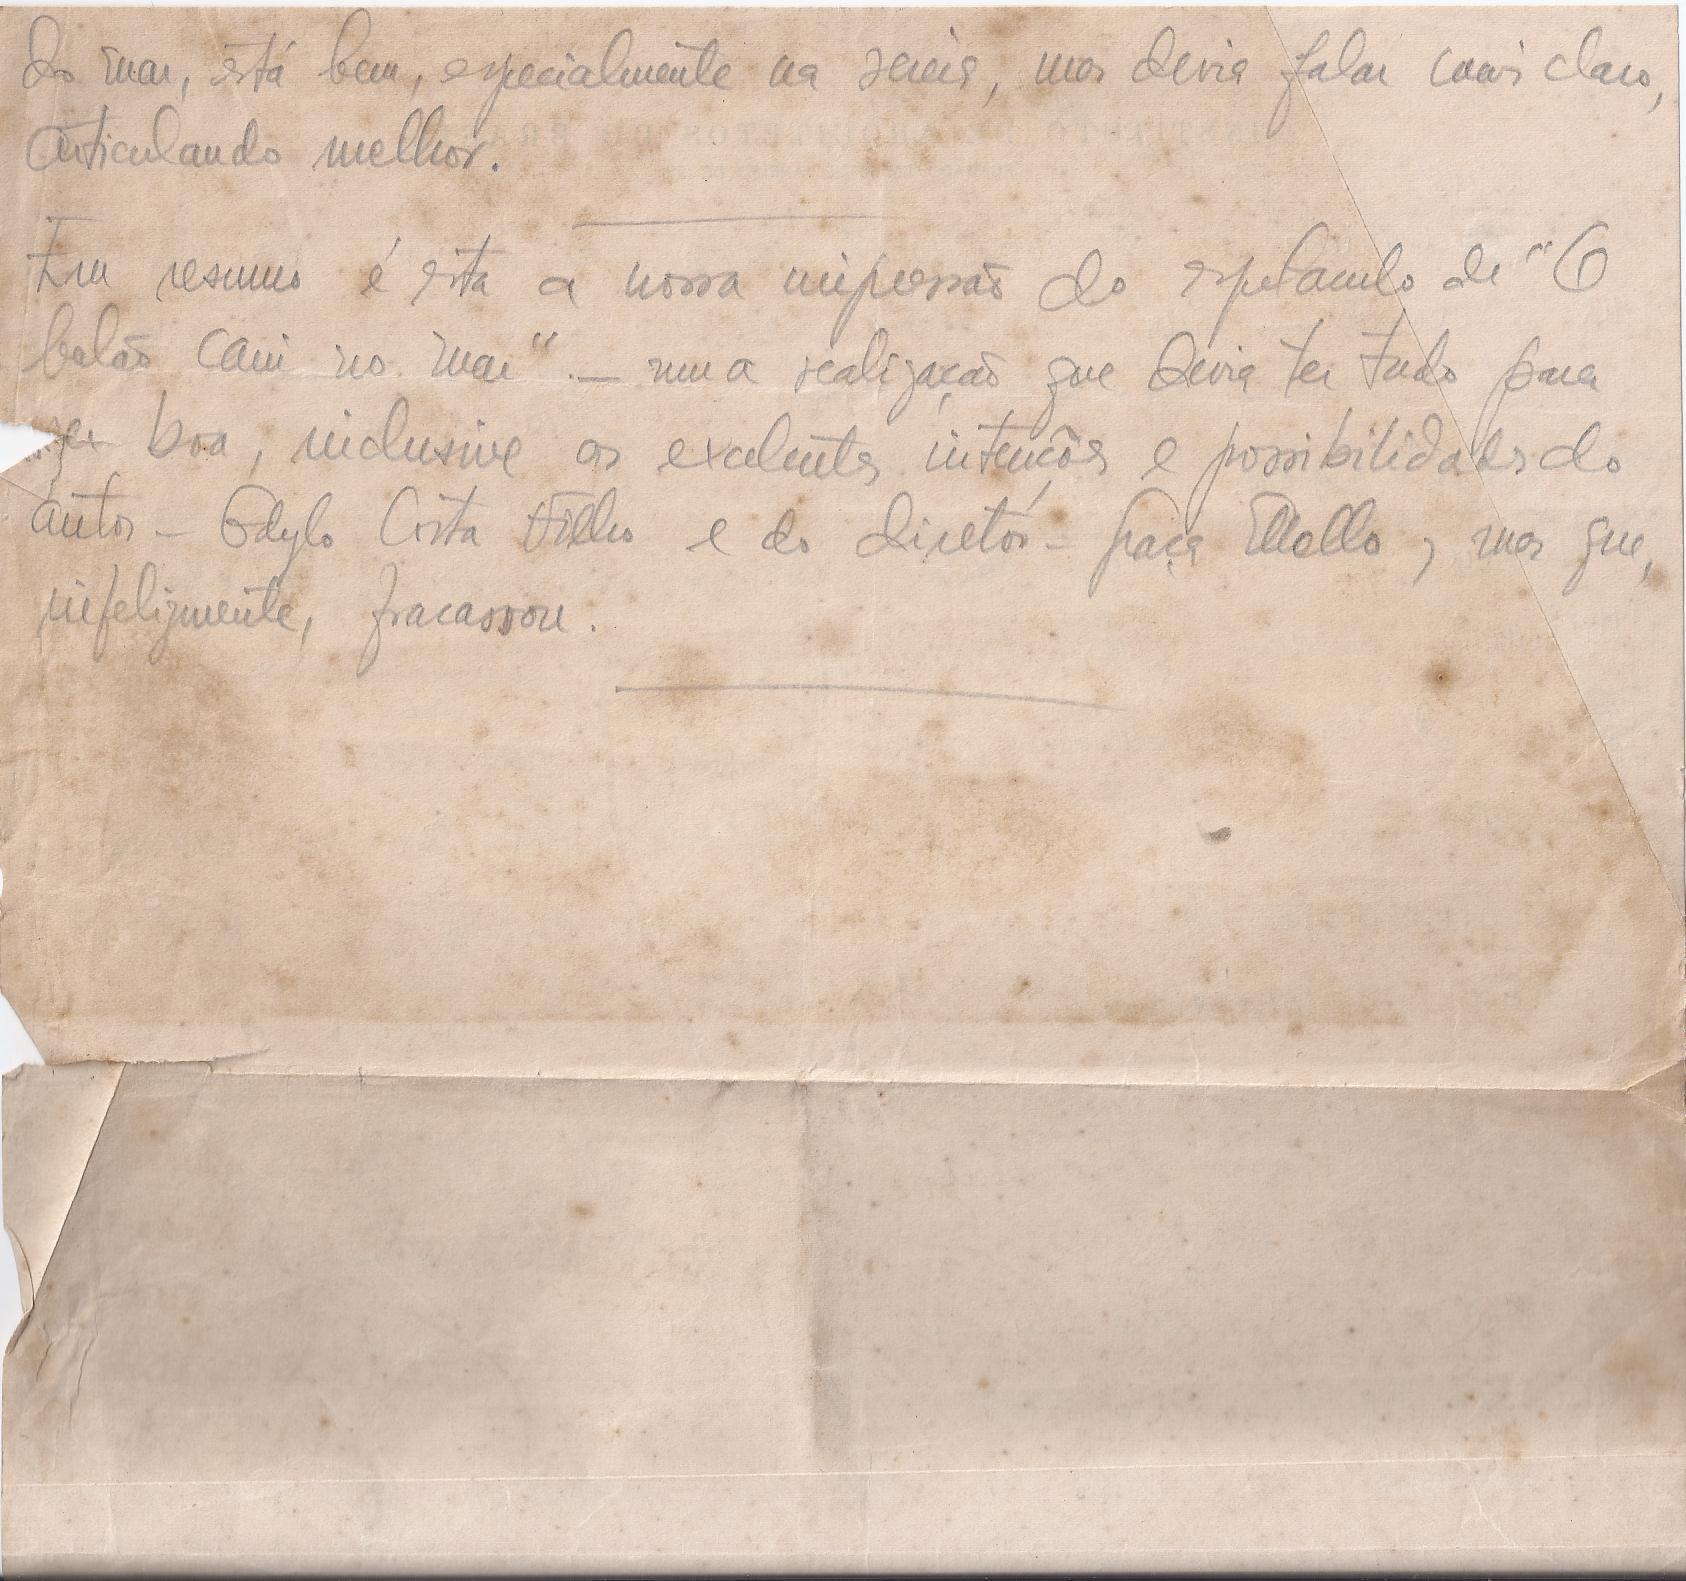 do mar, está bem, especialmente na sereia, mas devia falar mais claro,
articulando melhor.
Em resumo é esta a nossa impressão do espetáculo de "O
balão caiu no mar" — uma realização que devia ter tudo para
ser boa, inclusive as excelentes intenções e possibilidades do
autor – Odylo Costa Filho e do diretór – Graça Mello, mas que,
infelizmente, fracassou.